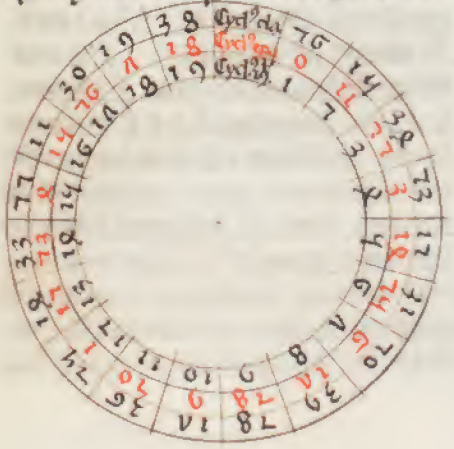 Cycl⁹ cla 26 15 34 23 12 31 20 39 28 17 36 25 14 33 22 11 30 19 38
Cycl⁹ epa 0 11 22 3 14 25 6 17 28 9 20 1 12 23 4 15 26 7 18
Cycl⁹ 19 1 2 3 4 5 6 7 8 9 10 11 12 13 14 15 16 17 18 19